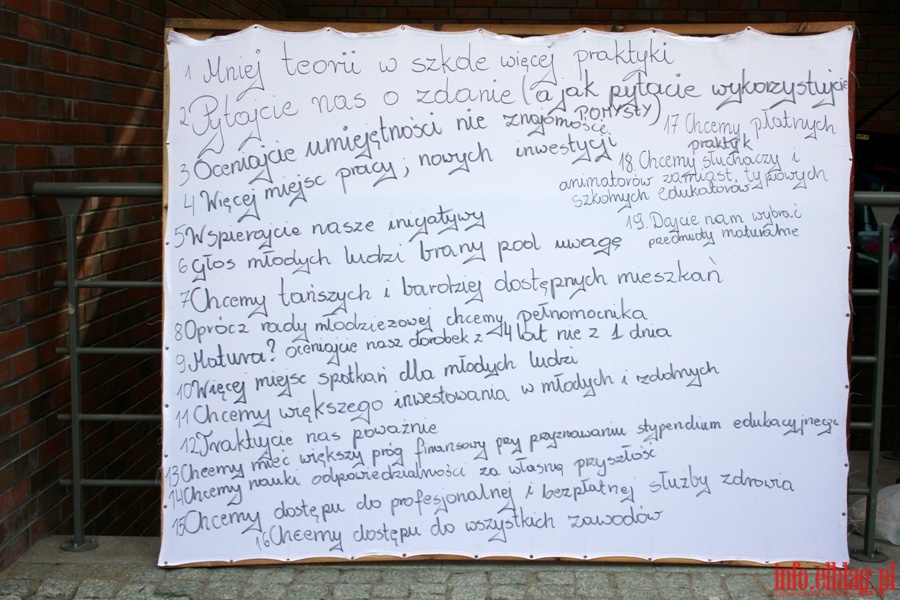 1 Mniej teorii w szkole więcej praktyki
2 Pytajcie nas o zdanie (a jak pytacie wykorzystujcie
POMYSŁY)
3 Oceniajcie umiejętności nie znajomości
4 Więcej miejsc pracy, nowych inwestycji
5 Wspierajcie nasze inicjatywy
6 Głos młodych ludzi brany pod uwagę
7 Chcemy tańszych i bardziej dostępnych mieszkań
8 Oprócz rady młodzieżowej chcemy pełnomocnika
9 Matura? oceniajcie nasz dorobek z 4 lat nie z 1 dnia
10 Więcej miejsc spotkań dla młodych ludzi
11 Chcemy większego inwestowania w młodych i zdolnych
12 Traktujcie nas poważnie
13 Chcemy mieć większy próg finansowy przy przyznawaniu stypendium edukacyjnego
14 Chcemy nauki odpowiedzialności za własną przyszłość
15 Chcemy dostępu do profesjonalnej i bezpłatnej służby zdrowia
16 Chcemy dostępu do wszystkich zawodów
17 Chcemy płatnych
praktyk
18. Chcemy słuchaczy i
animatorów zamiast typowych
szkolnych edukatorów
19. Dajcie nam wybrać
przedmioty maturalne
info.elblag.pl